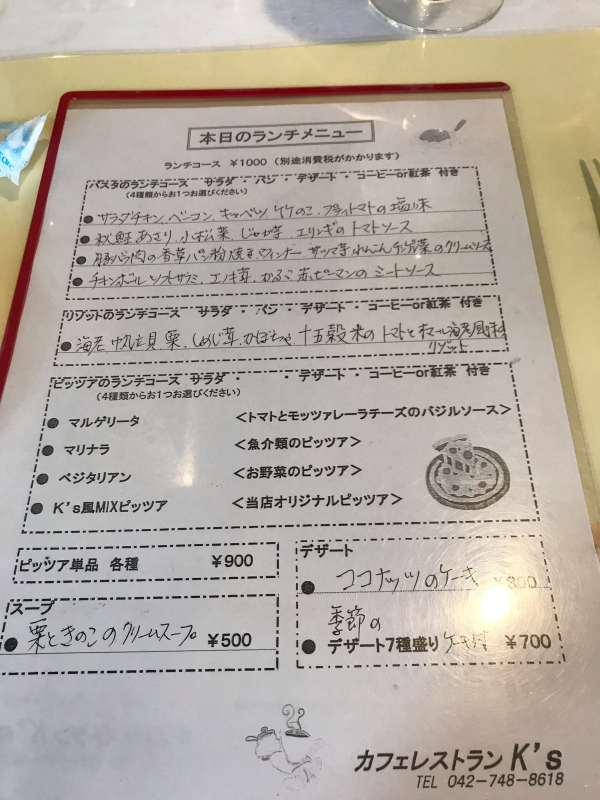 本日のランチメニュー
ランチコース ¥1000（別途消費税がかかります）
パスタのランチコース サラダ ・ パン ・ デザート ・ コーヒーor紅茶 付き
（4種類からお1つお選びください）
● サラダチキン、ベーコン、キャベツ、竹のこ、フライトマトの塩味
● 秋鮭、あさり、小松菜、じゃが芋、エリンギのトマトソース
● 豚バラ肉の香草パン粉焼き、ウィンナー、サツマ芋、れんこん、のクリームソース
● チキンボール、ソフトサラミ、エノキ茸、かぶ、赤ピーマンのミートソース
リゾットのランチコース サラダ ・ パン ・ デザート ・ コーヒーor紅茶 付き
● 海老、帆立貝、栗、しめじ茸、かぼちゃ、十五穀米のトマトと海老風味
リゾット
ピッツアのランチコース サラダ ・ ・ デザート ・ コーヒーor紅茶 付き
（4種類からお1つお選びください）
● マルゲリータ ＜トマトとモッツァレーラチーズのバジルソース＞
● マリナラ ＜魚介類のピッツア＞
● ベジタリアン ＜お野菜のピッツア＞
● K's風MIXピッツア ＜当店オリジナルピッツア＞
ピッツア単品 各種 ¥900
スープ
● 栗ときのこのクリームスープ ¥500
デザート
● ココナッツのケーキ ¥300
季節の
● デザート7種盛り ケーキ付 ¥700
カフェレストラン K's
TEL 042-748-8618